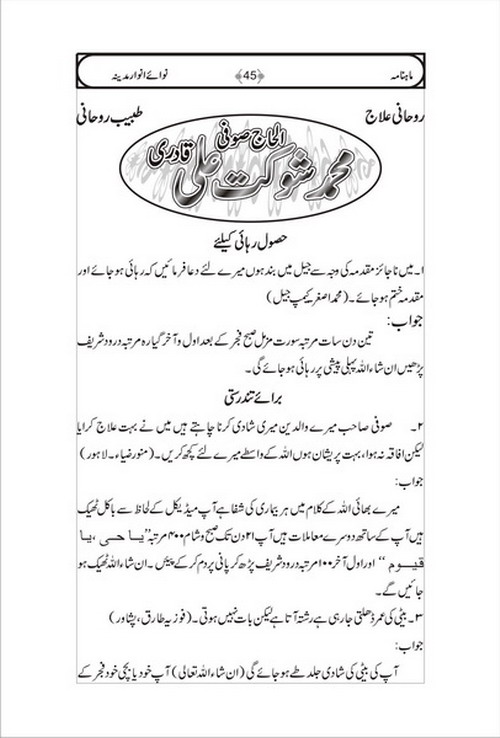 ماہنامہ ﴿45﴾ نوائے انوار مدینہ
روحانی علاج طبیب روحانی
الحاج صوفی
محمد شوکت علی قادری
حصول رہائی کیلئے
۱۔میں ناجائز مقدمہ کی وجہ سے جیل میں بند ہوں میرے لئے دعا فرمائیں کہ رہائی ہو جائے اور
مقدمہ ختم ہو جائے۔(محمد اصغر کیمپ جیل)
جواب:
تین دن سات مرتبہ سورت مزمل صبح فجر کے بعد اول و آخر گیارہ مرتبہ درود شریف
پڑھیں ان شاء اللہ پہلی پیشی پر رہائی ہو جائے گی۔
برائے تندرستی
۲۔ صوفی صاحب میرے والدین میری شادی کرنا چاہتے ہیں میں نے بہت علاج کرایا
لیکن افاقہ نہ ہوا، بہت پریشان ہوں اللہ کے واسطے میرے لئے کچھ کریں۔(منور ضیاء۔لاہور)
جواب:
میرے بھائی اللہ کے کلام میں ہر بیماری کی شفا ہے آپ میڈیکل کے لحاظ سے باکل ٹھیک
ہیں آپ کے ساتھ دوسرے معاملات ہیں آپ ۲۱دن تک صبح و شام ۴۰۰ مرتبہ”یا حی ،یا
قیوم “ اور اول آخر ۱۰۰مرتبہ درود شریف پڑھ کر پانی پر دم کر کے پیئں ۔ان شاء اللہ ٹھیک ہو
جائیں گے۔
۳۔بیٹی کی عمر ڈھلتی جا رہی ہے رشتہ آتا ہے لیکن بات نہیں ہوتی۔(فوزیہ طارق، پشاور)
جواب:
آپ کی بیٹی کی شادی جلد طے ہو جائے گی (ان شاء اللہ تعالی) آپ خود یا بچی خود فجر کے